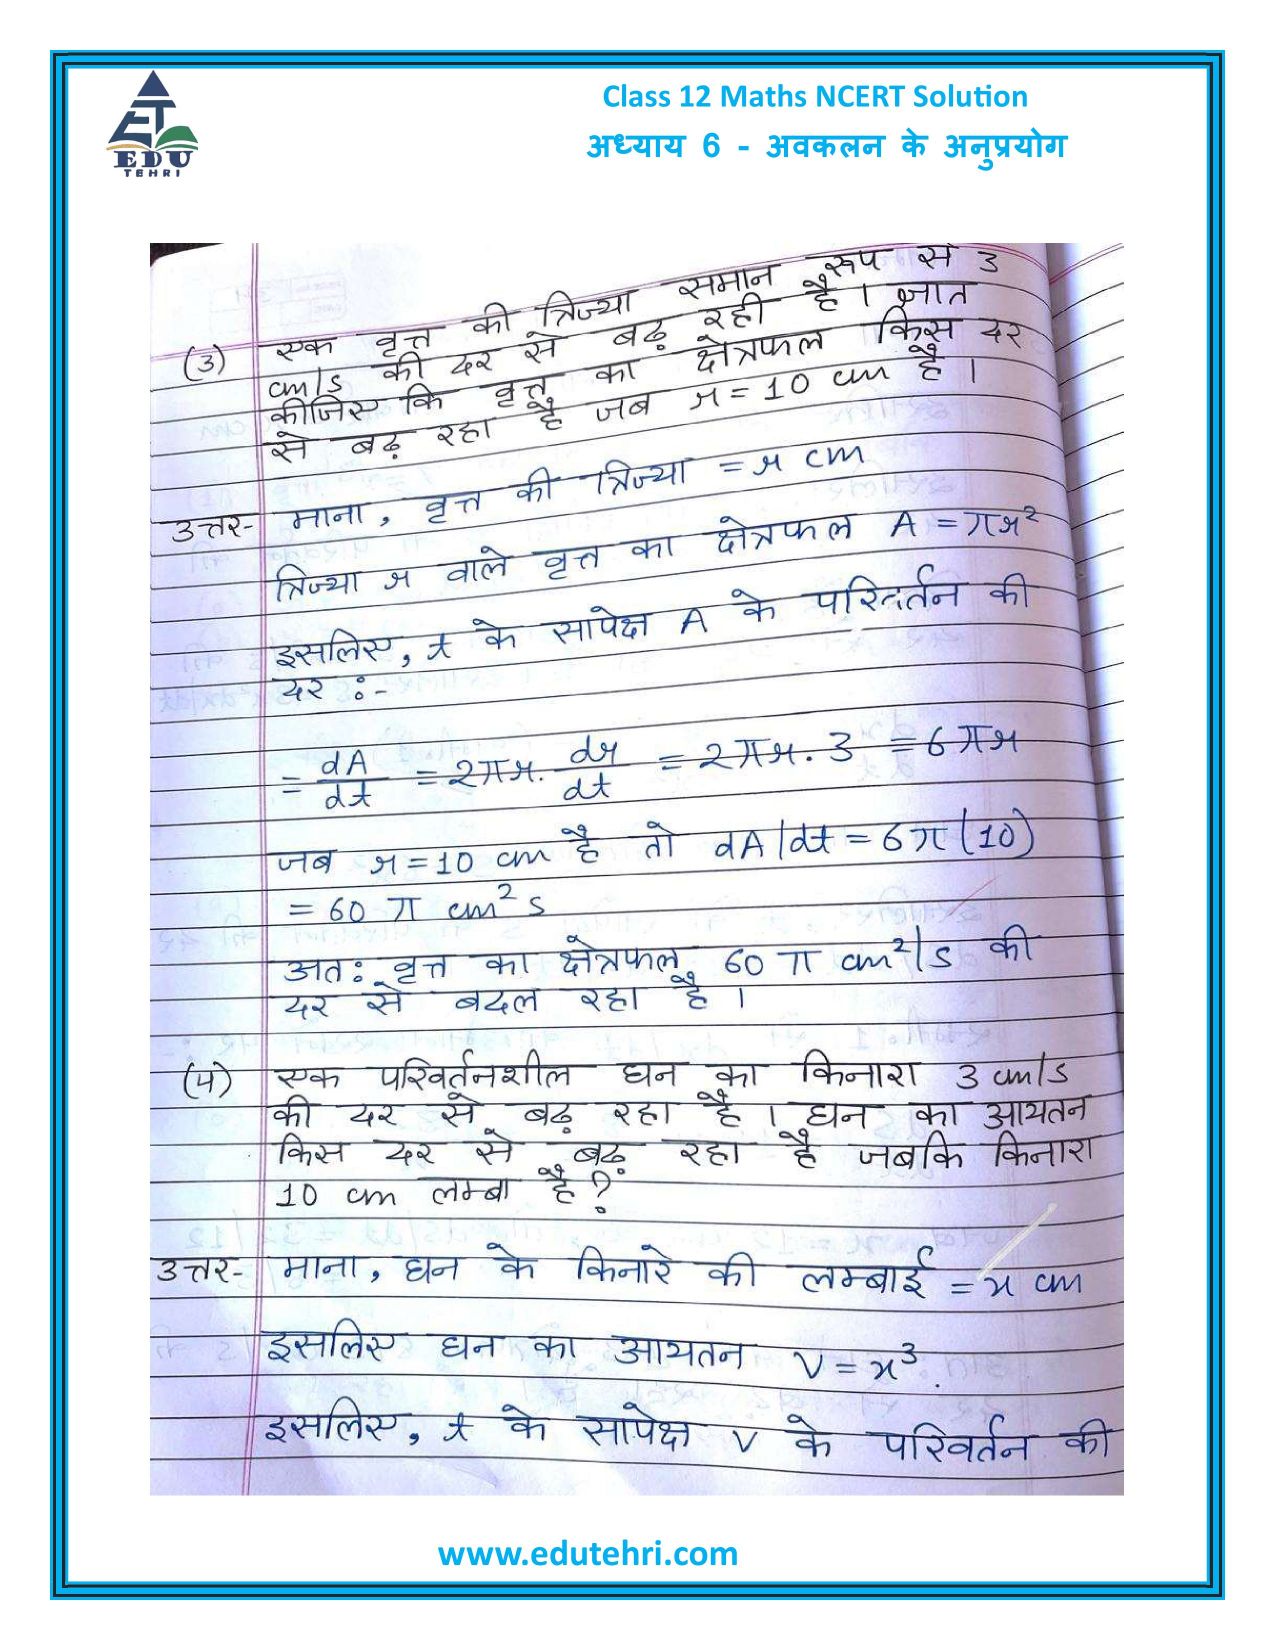 Class 12 Maths NCERT Solution
अध्याय 6 - अवकलन के अनुप्रयोग
ET
EDU
TEHRI
(3) एक वृत्त की त्रिज्या समान रूप से 3
cm/s की दर से बढ़ रही है। ज्ञात
कीजिए कि वृत्त का क्षेत्रफल किस दर
से बढ़ रहा है जब r = 10 cm है।
उत्तर- माना, वृत्त की त्रिज्या = r cm
त्रिज्या r वाले वृत्त का क्षेत्रफल A = πr²
इसलिए, t के सापेक्ष A के परिवर्तन की
दर :-
= dA/dt = 2πr. dr/dt = 2πr. 3 = 6πr
जब r = 10 cm है तो dA/dt = 6π(10)
= 60 π cm² s
अतः वृत्त का क्षेत्रफल 60 π cm²/s की
दर से बदल रहा है।
(4) एक परिवर्तनशील घन का किनारा 3 cm/s
की दर से बढ़ रहा है। घन का आयतन
किस दर से बढ़ रहा है जबकि किनारा
10 cm लम्बा है?
उत्तर- माना, घन के किनारे की लम्बाई = x cm
इसलिए घन का आयतन V = x³.
इसलिए, t के सापेक्ष V के परिवर्तन की
www.edutehri.com